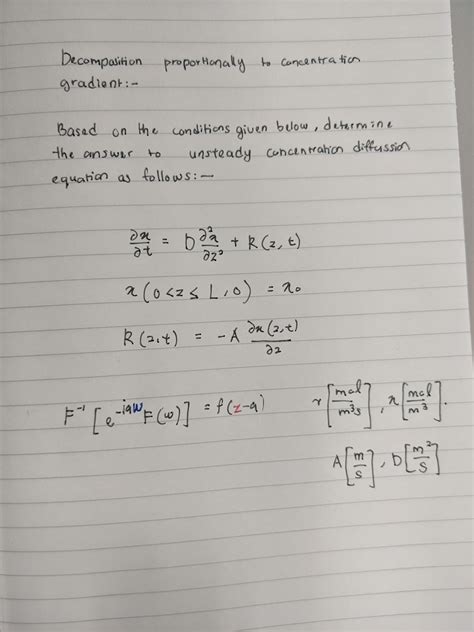 Decomposition proportionally to concentration
gradient:-
Based on the conditions given below, determine
the answer to unsteady concentration diffussion
equation as follows:-
∂x/∂t = D ∂²x/∂z² + R(z,t)
x(0<z≤L,0) = x₀
R(z,t) = -A ∂x(z,t)/∂z
F⁻¹[e^(-iaω) F(ω)] = f(z-a) r[mol/m³s], x[mol/m³].
A[m/s], D[m²/s]